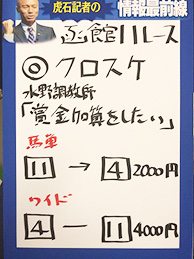 虎石記者の
情報最前線
函館11レース
◎クロスケ
水野調教師
「賞金加算をしたい」
馬単
11→4 2000円
ワイド
4-11 4000円